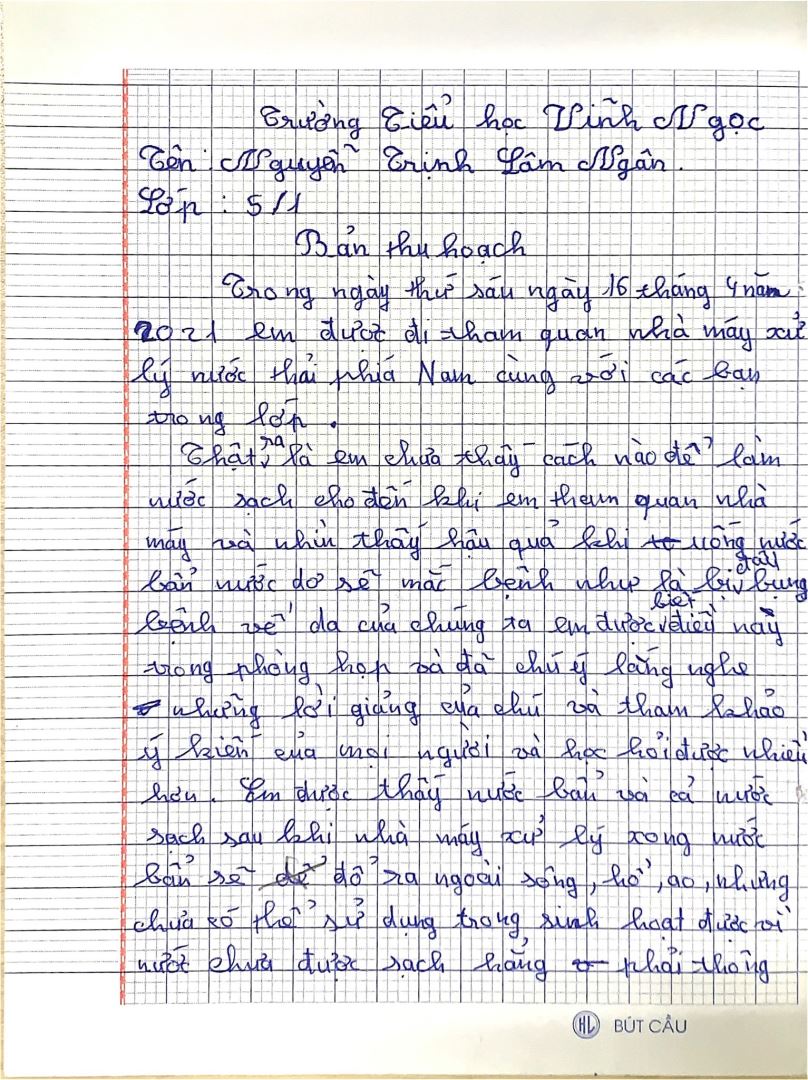 Trường Tiểu học Vĩnh Ngọc
Tên : Nguyễn Trịnh Lâm Ngân.
Lớp : 5/1
Bản thu hoạch
Trong ngày thứ sáu ngày 16 tháng 4 năm
2021 em được đi tham quan nhà máy xử
lý nước thải phía Nam cùng với các bạn
trong lớp.
Thật ra là em chưa thấy cách nào để làm
nước sạch cho đến khi em tham quan nhà
máy và nhìn thấy hậu quả khi uống nước
bẩn nước dơ sẽ mắc bệnh như là bị đau bụng
bệnh về da của chúng ta em được biết về điều này
trong phòng họp và đã chú ý lắng nghe
những lời giảng của chú và tham khảo
ý kiến của mọi người và học hỏi được nhiều
hơn. Em được thấy nước bẩn và cả nước
sạch sau khi nhà máy xử lý xong nước
bẩn sẽ đổ ra ngoài sông, hồ, ao, nhưng
chưa có thể sử dụng trong sinh hoạt được vì
nước chưa được sạch hẳng phải thông
HL BÚT CẦU